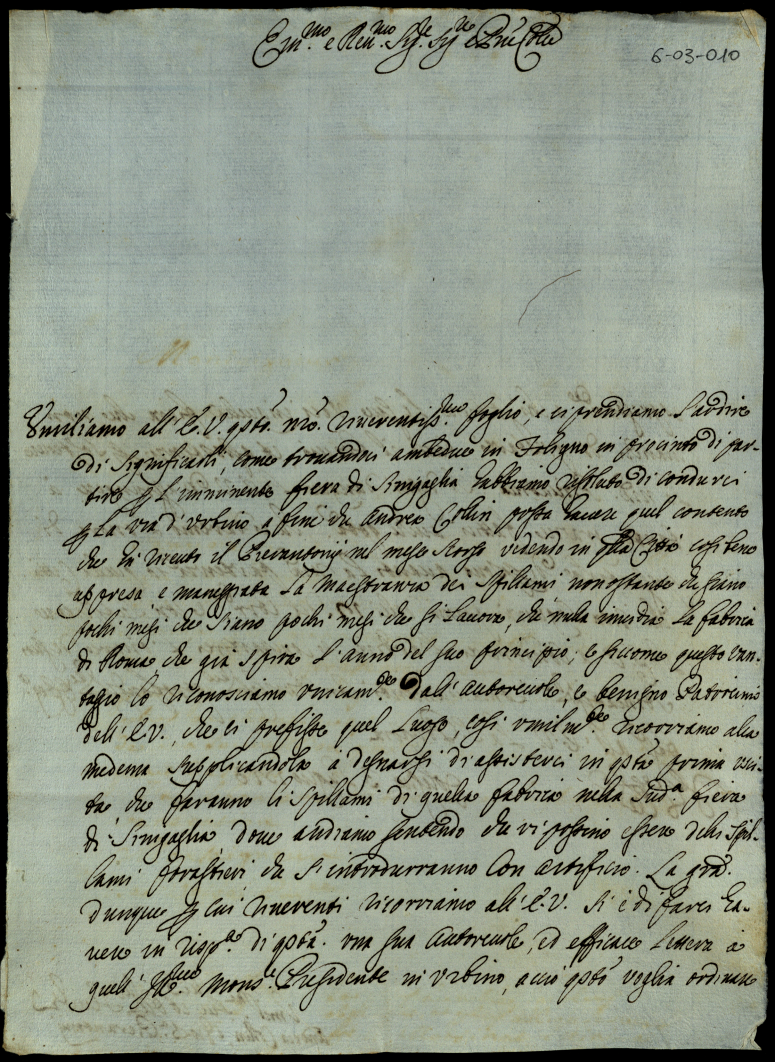 Em.mo e Rev.mo Sig.re Sig.re e Pne Colmo
6-03-010
Umiliamo all'E.V. qsto. nro. riverentiss.mo foglio, e ci prendiamo l'ardire
di significarli, come trovandoci ambedue in Foligno in procinto di par-
tire p l'imminente fiera di Sinigaglia habbiamo resoluto di condurci
p la via d'Urbino affine che Andrea Collin possa havere quel contento
che hà havuti il Pierantonij nel mese scorso vedendo in qlla Città così bene
appresa e maneggiata la Maestranza dei Spillami nonostante che siano
pochi mesi che siano pochi mesi che si lavora, che nulla invidia la fabrica
di Roma che già spira l'anno del suo principio; e siccome questo van-
tagio lo riconosciamo unicam.te dall'autorevole, e benigno Patrocinio
dell'E.V., che ci prefisse quel luogo, così umilm.te ricorriamo alla
medema supplicandola a degnarsi di assisterci in qsta prima usci-
ta che faranno li spillami di quella fabrica nella sud.a fiera
di Sinigaglia dove andiamo sentendo che vi possino essere delli spil-
lami forastieri che s'introdurranno con artificio. La gra.
dunque p cui riverenti ricorriamo all'E.V. si è di farci ha-
vere in risp.ta di qsta una sua autorevole, ed efficace lettera a
quell'Ill.mo Mons.re Presidente in Urbino, acciò qsto voglia ordinare